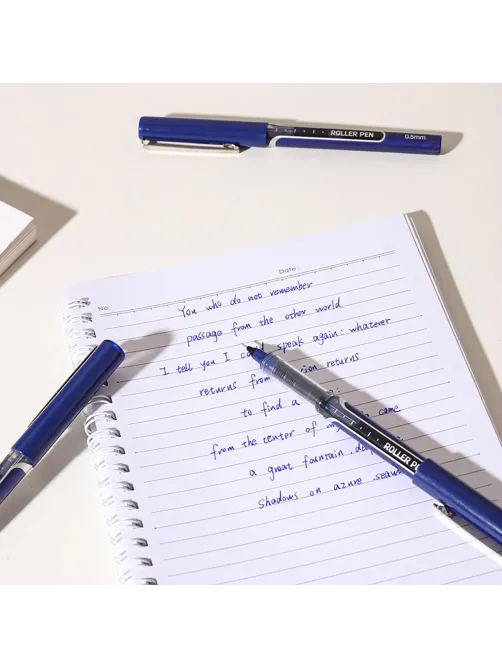 ROLLER PEN 0.5mm
No. Date:
You who do not remember
passage from the other world
I tell you I speak again: whatever
returns from returns
to find a
from the center of came
a great fountain
Shadows on azure
ROLLER